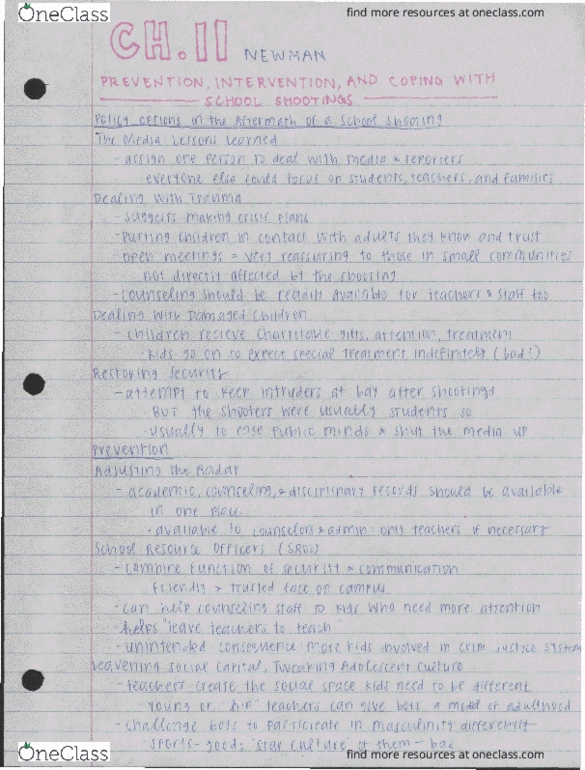 OneClass
find more resources at oneclass.com
CH.11 NEWMAN
PREVENTION, INTERVENTION, AND COPING WITH
SCHOOL SHOOTINGS
Policy Options in the Aftermath of a School Shooting
The Media Lessons Learned
- assign one person to deal with media & reporters
· everyone else could focus on students, teachers, and families
Dealing with Trauma
- suggests making crisis plans
- Putting children in contact with adults they know and trust
- open meetings = very reassuring to those in small communities
not directly affected by the shooting
- counseling should be readily available for teachers & staff too
Dealing With Damaged Children
- children recieve charitable gifts, attention, treatment
· kids go on to expect special treatment indefinitely (bad!)
Restoring Security
- attempt to keep intruders at bay after shootings
· BUT the shooters were usually students so
· usually to ease public minds & shut the media up
Prevention
Adjusting the Radar
- academic, counseling, & disciplinary records should be available
in one place
· available to counselors & admin: only teachers if necessary
School Resource Officers (SROs)
- combine function of security & communication
· friendly & trusted face on campus
- can help counseling staff to kids who need more attention
helps "leave teachers to teach"
- unintended consequence: more kids involved in crim justice system
Leavening Social Capital, Tweaking Adolescent Culture
- teachers create the social space kids need to be different
· young or "hip" teachers can give boys a model of adulthood
- challenge boys to participate in masculinity differently
· sports - good; "star culture" of them - bad
OneClass
find more resources at oneclass.com